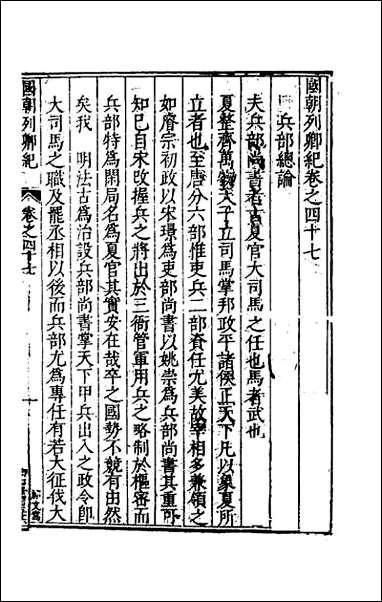 國朝列卿紀卷之四十七
兵部總論
夫兵部尚書者古夏官大司馬之任也馬者武也
夏整齊萬物天子立司馬掌邦政平諸侯正天下凡以象夏所
立者也至唐分六部惟吏兵二部資任尤美故宰相多兼領之
如唐宗初政以宋璟為吏部尚書以姚崇為兵部尚書其重可
知已自宋改握兵之將出於三衙管軍用兵之略制於樞密而
兵部特為閑局名為夏官其實安在哉卒之國勢不競有由然
矣我　明法古為治設兵部尚書掌天下甲兵出入之政令即
大司馬之職及罷丞相以後而兵部尤為專任有若大征伐大
國朝列卿紀
卷之四十七